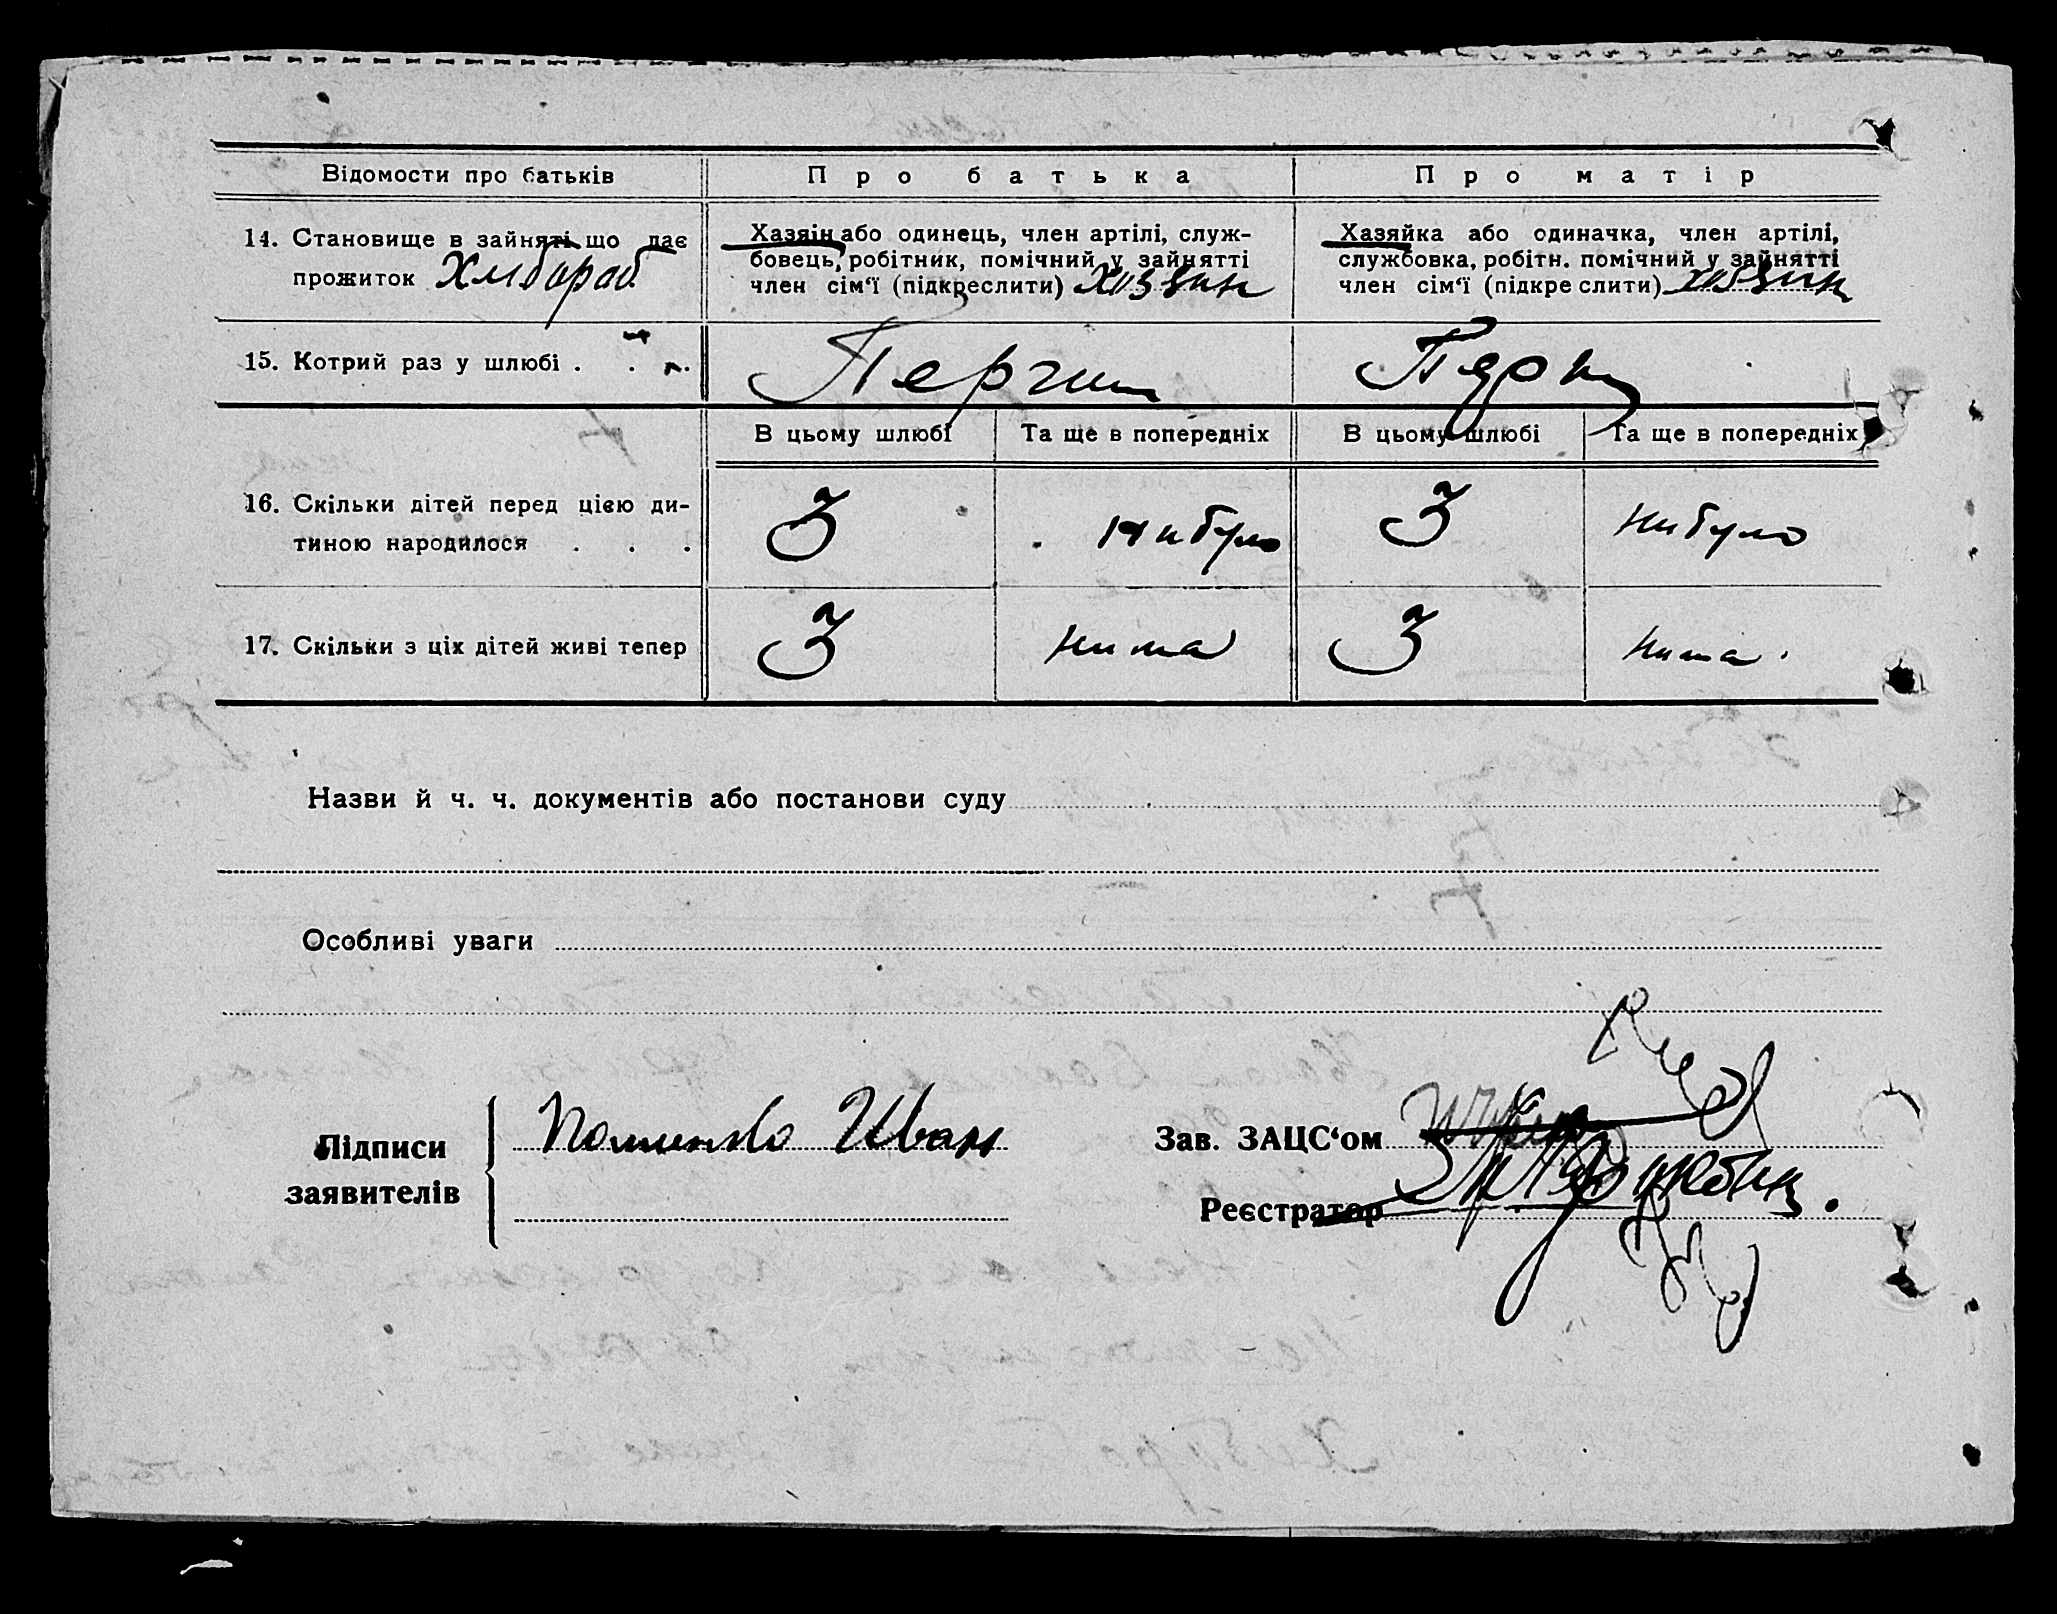 Відомости про батьків Про батька Про матір
14. Становище в зайняті що дає
прожиток Хлібороб
Хазяїн або одинець, член артілі, служ-
бовець, робітник, помічний у зайнятті
член сім'ї (підкреслити)
Хазяйка або одиначка, член артілі,
службовка, робітн. помічний у зайнятті
член сім'ї (підкреслити)
15. Котрий раз у шлюбі . . .
В цьому шлюбі Та ще в попередніх В цьому шлюбі Та ще в попередніх
16. Скільки дітей перед цією ди-
тиною народилося . . .
3 нибуло 3 нибуло
17. Скільки з ціх дітей живі тепер 3 нима 3 нима
Назви й ч. ч. документів або постанови суду
Особливі уваги
Підписи
заявителів
Іван
Зав. ЗАЦС‘ом
Реєстратор